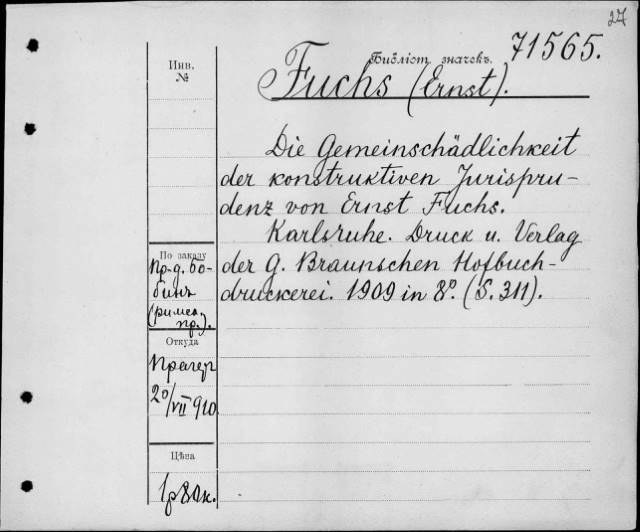 27
Библіот. значекъ. 71565.
Инв.
№
Fuchs (Ernst).
Die Gemeinschädlichkeit
der konstruktiven Jurispru-
denz von Ernst Fuchs.
Karlsruhe. Druck u. Verlag
der G. Braunschen Hofbuch-
druckerei. 1909 in 8º. (S. 311).
По заказу
пр-д. Бо-
бинъ
(римск.
пр.).
Откуда
Прагер
20/VII 910
Цѣна
1р 80к.